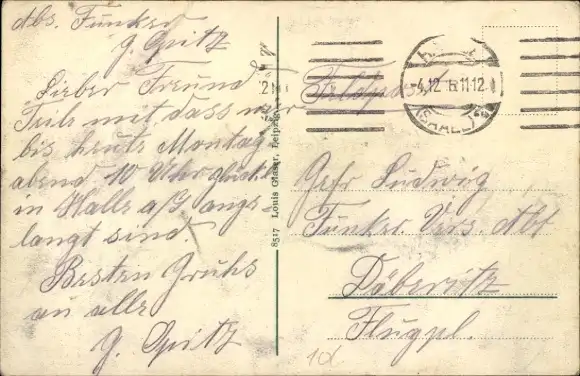 Abs. Funker
G. Spitz
Lieber Freund
Teile mit, dass wir
bis heute Montag
abend 10 Uhr glückl.
in Halle a/S ange-
langt sind.
Besten Gruhs
an alle
G. Spitz
8517 Louis Glaser, Leipzig
Feldpost
HALLE
-4.12.15.11-12
(SAALE) *2
Gefr Ludwig
Funker Vers. Abt
Döberitz
Flugpl.
10